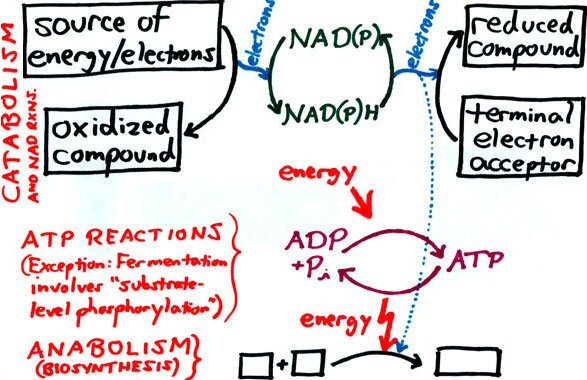 source of
energy/electrons
oxidized
compound
electrons
NAD(P)
NAD(P)H
electrons
reduced
compound
terminal
electron
acceptor
CATABOLISM
AND NAD RXNS.
energy
ATP REACTIONS
(Exception: Fermentation
involver "substrate-
level phosphorylation")
ADP
+Pi
ATP
energy
ANABOLISM
(BIOSYNTHESIS)
+